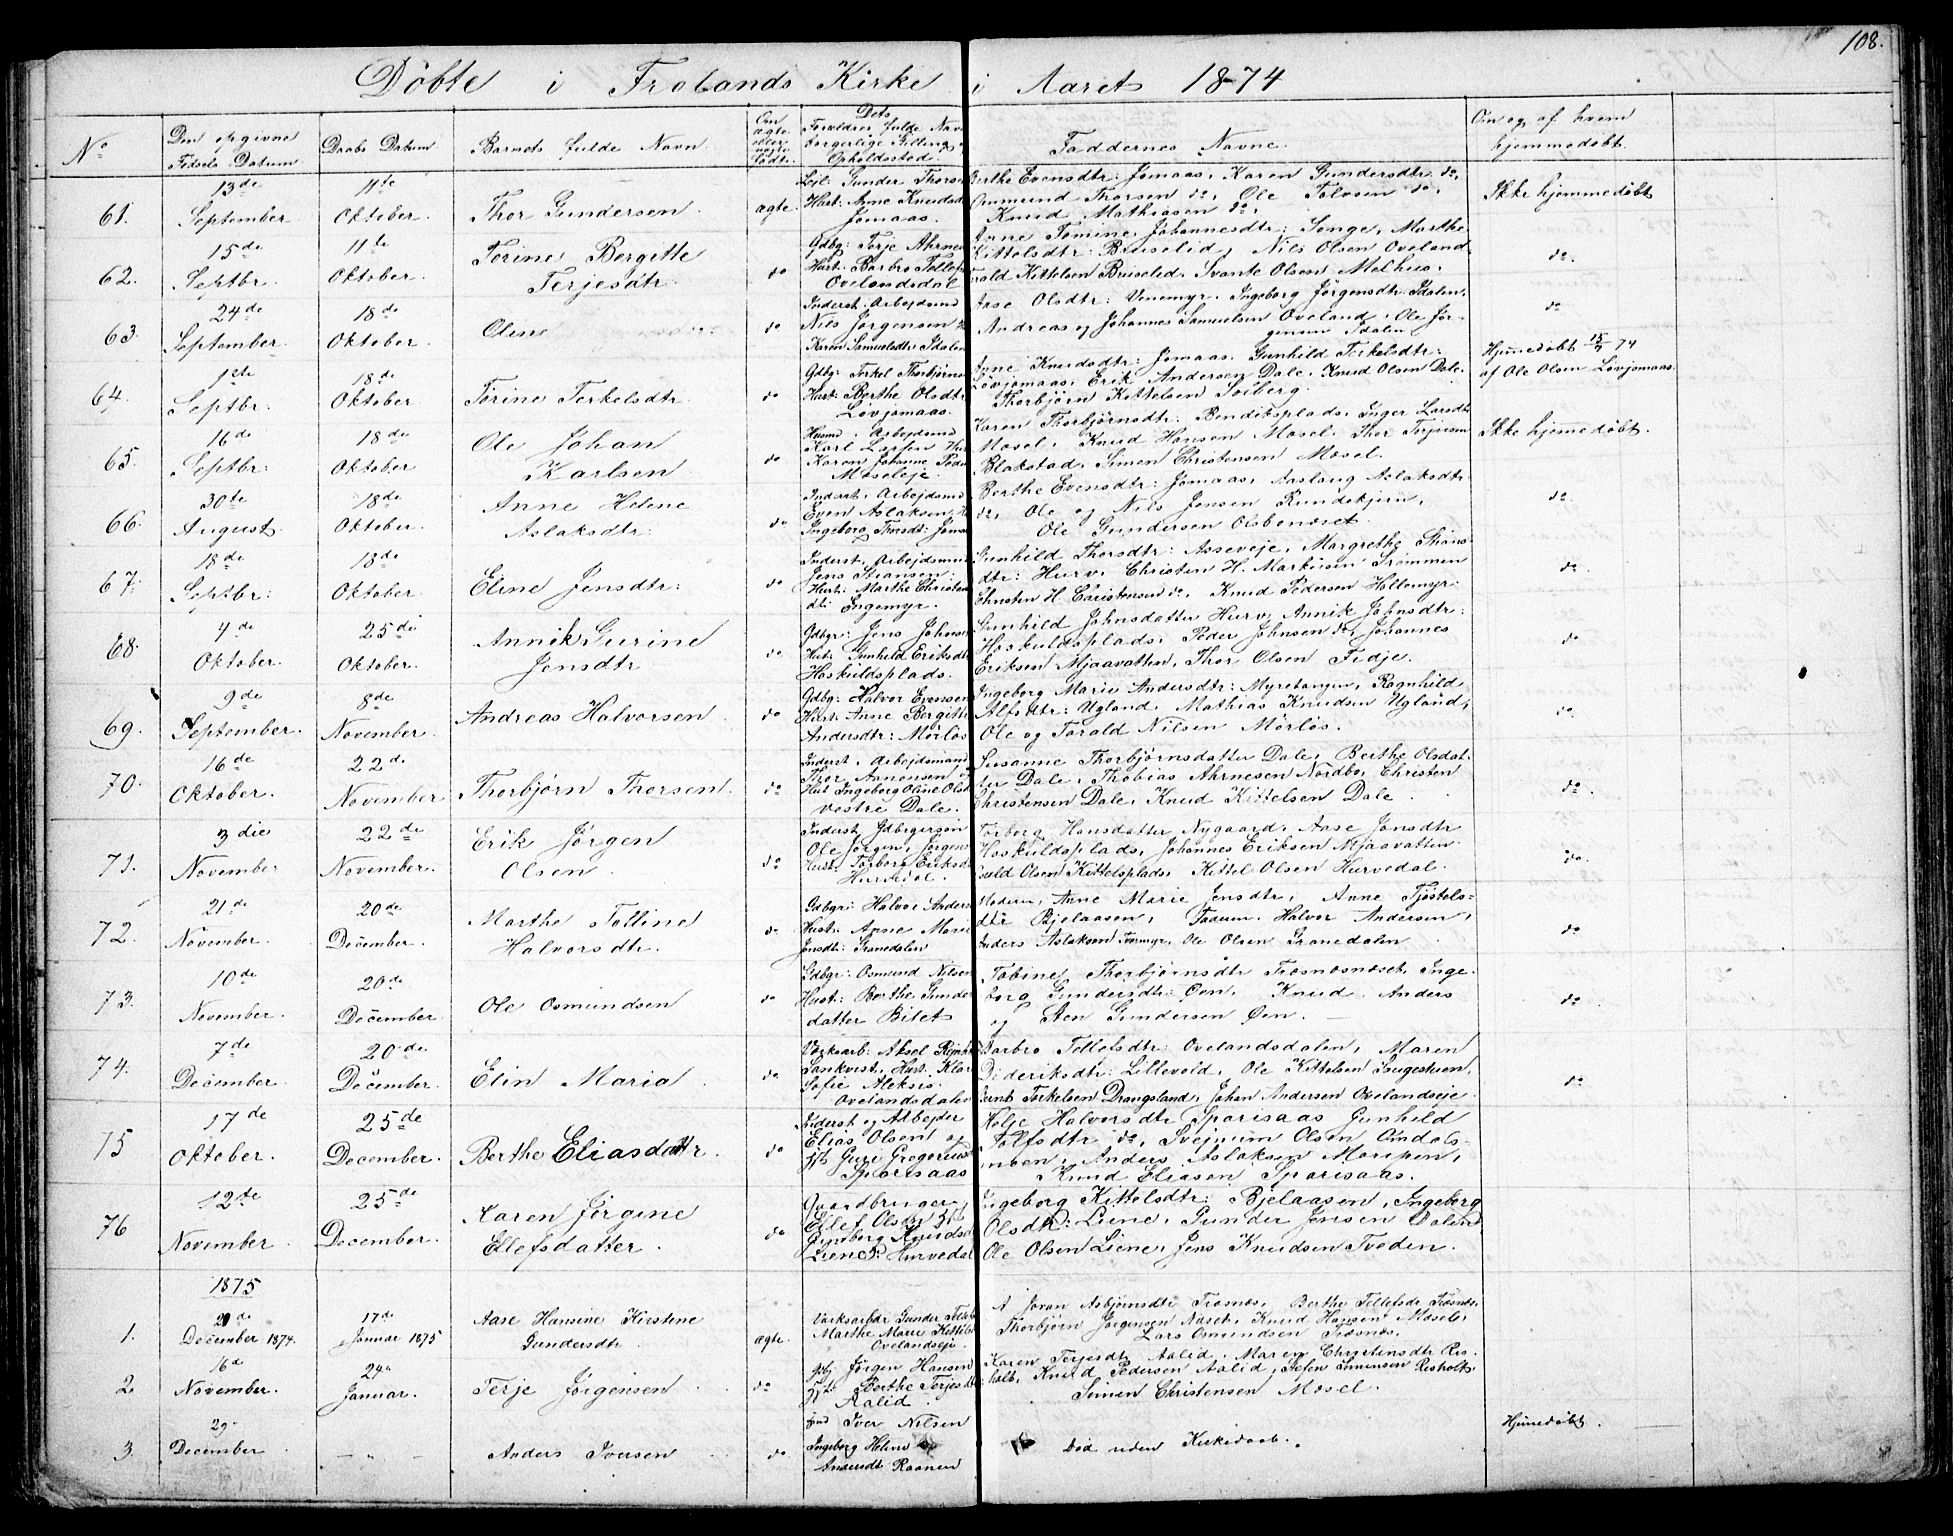 108.
Döbte i Frolands Kirke i Aaret 1874
No
Den opgivne
Fødsels Datum
Daabs Datum
Barnets fulde Navn
Om
ægte
eller
uægte
født.
Dets
Forældres fulde Navn
borgerlige Stilling
Opholdssted.
Faddernes Navne.
Om og af hvem
hjemmedøbt.
61. 13de September 11te Oktober. Thor Gundersen ægte.
Lejl: Gunder Thorsen
Hust: Anne Knudsdtr
Jomaas.
Berthe Evensdtr: Jomaas, Karen Gundersdtr do,
Ommund Thorsen do, Ole Tolvsen do,
Knud Mathiasen do,
Ikke hjemmedøbt
62. 15de Septbr. 11te Oktober. Torine Bergitte
Terjesdtr. do
Gdbg: Terje Ahrnes
Hust: Barbro Tellefs
Ovelandsdal
Anne Tomine Johannesdtr: Songe, Marthe
Kittelsdtr: Buiselid, Nils Olsen Oveland
Kittelsen Buiselid, Svante Olsen Melhus.
do.
63. 24de September. 18de Oktober. Oline do
Inderst. Arbejdsmd
Nils Jørgensen
Karen Samuelsdtr Idalen
Aase Olsdtr: Venemyr. Ingeborg Jörgensdtr: Idalen,
Andreas og Johannes Samuelsen Oveland, Ole Jör-
gensen Idalen
do
64. 1ste Septbr: 18de Oktober Torine Terkelsdtr. do
Gdbg: Terkel Thorbjørns
Hust: Berthe Olsdtr
Lövjomaas.
Anne Knudsdtr: Jomaas. Gunhild Terkelsdtr:
Lövjomaas, Erik Andersen Dale, Knud Olsen Dale.
Thorbjörn Kittelsen Solberg.
Hjemmedøbt 15/9 74
af Ole Olsen Lövjomaas
65. 16de Septbr: 18de Oktober Ole Johan
Karlsen do
Husmd: Arbejdsmd
Karl Larsen
Karen Johanne Peder
Moseleje.
Karen Thorbjörnsdtr: Benditsplads, Inger Larsdtr
Mosel, Knud Hansen Mosel. Thor Terjesen
Blakstad. Simen Christensen Mosel.
Ikke hjemmedøbt.
66. 30te August. 18de Oktober. Anne Helene
Aslaksdtr: do
Inderst. Arbejdsmd
Even Aslaksen,
Ingeborg Thorsdtr: Jomaas
Berthe Evensdtr: Jomaas, Aaslaug Aslaksdtr
do, Ole og Nils Jensen Rundekjern,
Ole Gundersen Osbenæset.
do.
67. 18de Septbr: 18de Oktober. Eline Jensdtr: do
Inderst. Arbejdsmd
Jens Stiansen.
Hust: Marthe Christens
dtr: Engemyr.
Gunhild Thorsdtr: Asseveje, Margrethe Stians-
dtr: Hurv. Christen H. Markusen Strömmen
Christen H. Christensen do, Knud Pedersen Hellemyr.
do.
68. 4de Oktober. 25de Oktober. Annik Gurine
Jensdtr do
Gdbgr: Jens Johnsen
Hst: Gunhild Eriksdtr
Hoskuldsplads.
Gunhild Johnsdatter Hurv, Annik Johnsdtr:
Hoskuldsplads, Peder Johnsen do, Johannes
Eriksen Mjaavatten, Thor Olsen Fidje.
do
69. 9de September. 8de November. Andreas Halvorsen do
Gdbg: Halvor Evensen
Hust: Anne Bergitte
Andersdtr: Mörlös
Ingeborg Marie Andersdtr: Myretangen, Ragnhild
Alfsdtr: Ugland. Mathias Knudsen Ugland,
Ole og Torald Nilsen Mörlös.
do.
70. 16de Oktober. 22de November Thorbjörn Thorsen. do
Inderst, Arbejdsmand
Thor Aanonsen
Hust Ingeborg Oline Olsd
vestre Dale.
Susanne Thorbjørnsdatter Dale, Berthe Olsdat-
ter Dale, Thobias Ahrnesen Nordbo, Christen
Christensen Dale, Knud Kittelsen Dale
do.
71. 3die November 22de November. Erik Jørgen
Olsen. do
Inderst Gdbrgersøn
Ole Jørgen Jørgens
Hust: Torborg Eriksd
Hurvedal.
Torborg Hansdatter Nygaard. Aase Jonsdtr
Hoskuldsplads, Johannes Eriksen Mjaavatten
Olsen Kittelsplads, Kittel Olsen Hurvedal.
do.
72. 21de November. 20de December. Marthe Tolline
Halvorsdtr. do
Gdbgr: Halvor Anders
Hust. Anne Marie
Jensdtr: Granedalen
Moderen, Anne Marie Jensdtr, Anne Tjöstels-
dtr Bjelaasen, Faderen Halvor Andersen,
Anders Aslaksen Tvermyr, Ole Olsen Granedalen
do
73. 10de November. 20de December Ole Osmundsen do
Gdbgr: Osmund Nilsen
Hust: Berthe Gunder
datter Bilet
Tobine Thorbjørnsdtr Trøsnæsnæset, Inge-
borg Gundersdtr: Öen, Knud, Anders
og Sten Gundersen Öen.
do.
74. 7de December 20de December. Elin Maria do.
Værksarb: Aksel
Lankvist, Hust. Klar
Sofie Aleksis.
Ovelandsdalen
Barbro Tellefsdtr: Ovelandsdalen, Maren
Dideriksdtr: Lillevold, Ole Kittelsen Laugestuen,
Bernt Terkelsen Drangsland, Johan Andersen Ovelandseje
do
75 17de Oktober. 25de December. Berthe Eliasdattr. do
Inderst og Arbejder
Elias Olsen og
Hst Guri Gregorius
Sparsaas
Helje Halvorsdtr Sparisaas Gunhild
Tolfsdtr do, Svejnum Olsen Omdals-
moen, Anders Aslaksen Moripen,
Knud Eliasen Sparisaas.
76 12te November 25de December. Karen Jörgine
Ellefsdatter. do
Gaardbruger
Ellef Olsen Hst
Ingeborg Knudsd
Liene: Hurvedal
Ingeborg Kittelsdtr: Bjelaasen, Ingeborg
Olsdtr: Liene, Gunder Jensen Dalen
Ole Olsen Liene, Jens Knudsen Tveden.
1875
1. 20de December 1874. 17de Januar 1875 Aase Hansine Kirstine
Gundersdtr ægte.
Værksarbdr Gunder Tellefs
Marthe Marie Kittels
Ovelandseje.
A Joran Asbjørnsdtr Trøsnæs, Berthe Tellefsdr Trøsnæs,
Thorbjørn Jørgensen Næset, Knud Hansen Mosel,
Lars Osmundsen Trøsnæs.
2. 16d November. 24de Januar. Terje Jörgensen do
Gbr Jörgen Hansen
Hst Berthe Terjesdtr
Aalid.
Karen Terjesdtr Aalid, Maren Christensdtr Ris-
holt, Knud Pedersen Aalid, Stefen Simensen Risholt
Simen Christensen Mosel.
3. 29 December - „ - Anders Iversen do
Iver Nilsen
Ingeborg Heline
Andersdt Raanen
Död uden Kirkedaab.
Hjemmedøbt.